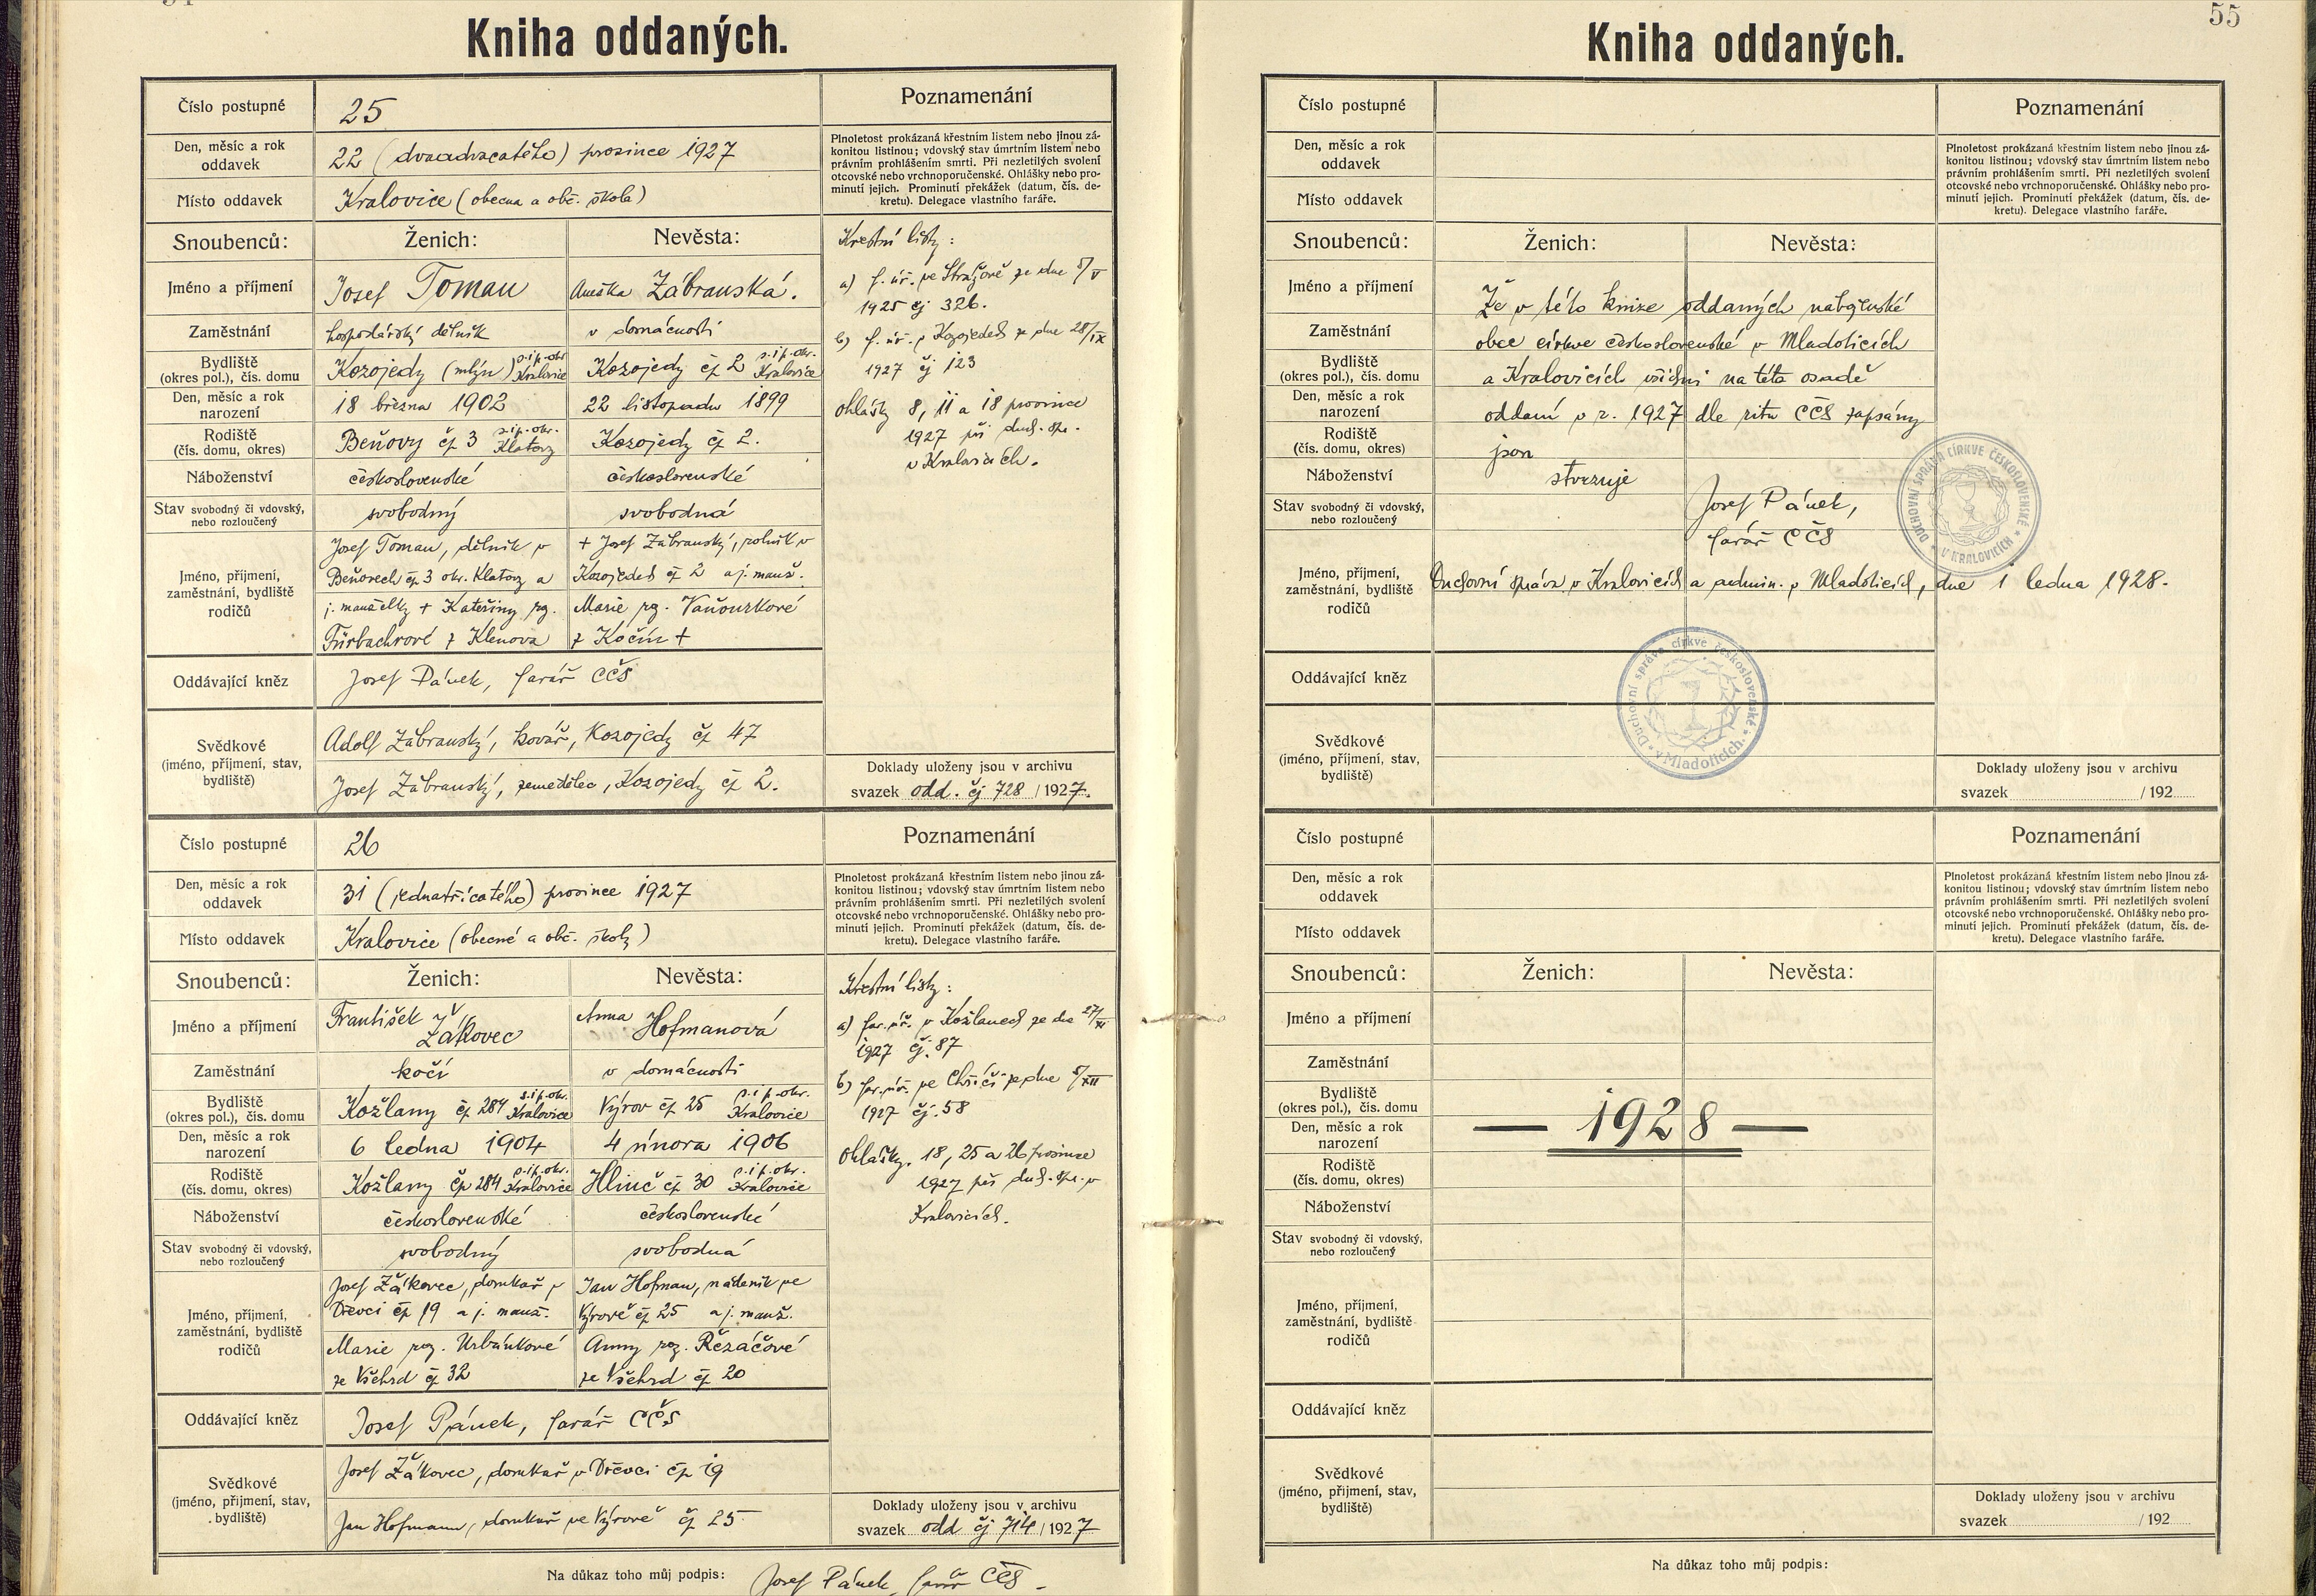 Kniha oddaných.
Číslo postupné 25 Poznamenání
Den, měsíc a rok oddavek 22 (dvaadvacatého) prosince 1927
Plnoletost prokázaná křestním listem nebo jinou zá-
konitou listinou; vdovský stav úmrtním listem nebo
právním prohlášením smrti. Při nezletilých svolení
otcovské nebo vrchnoporučenské. Ohlášky nebo pro-
minutí jejich. Prominutí překážek (datum, čís. de-
kretu). Delegace vlastního faráře.
Místo oddavek Kralovice (obecna a obč. škola)
Snoubenců: Ženich: Nevěsta:
Jméno a příjmení Josef Toman Anežka Zábranská.
Zaměstnání hospodářský dělník v domácnosti
Bydliště (okres pol.), čís. domu Kozojedy (mlýn) s.i p. okr. Kralovice Kozojedy čp 2 s.i p. okr. Kralovice
Den, měsíc a rok narození 18 března 1902 22 listopadu 1899
Rodiště (čís. domu, okres) Beňovy čp 3 s.i p. okr. Klatovy Kozojedy čp 2.
Náboženství československé československé
Stav svobodný či vdovský, nebo rozloučený svobodný svobodná
Jméno, příjmení, zaměstnání, bydliště rodičů
Josef Toman, dělník v
Beňovech čp 3 okr. Klatovy a
j. manželky + Kateřiny roz.
Fürbachrové z Klenova
+ Josef Zábranský, rolník v
Kozojedech čp 2 a j. manž.
Marie roz. Vaňourkové
z Kočín +
Křestní listy:
a) f. úř. ve Strážově ze dne 5/V
1925 čj 326.
b) f. úř. v Kozojedech ze dne 28/IX
1927 čj 123
Ohlášky 8, 11 a 18 prosince
1927 při duch. spr.
v Kralovicích.
Oddávající kněz Josef Pánek, farář CČS
Svědkové (jméno, příjmení, stav, bydliště)
Adolf Zábranský, kovář, Kozojedy čp 47
Josef Zábranský, zemědělec, Kozojedy čp 2.
Doklady uloženy jsou v archivu
svazek odd. čj 728 / 1927.
Číslo postupné 26 Poznamenání
Den, měsíc a rok oddavek 31 (jednatřicatého) prosince 1927
Plnoletost prokázaná křestním listem nebo jinou zá-
konitou listinou; vdovský stav úmrtním listem nebo
právním prohlášením smrti. Při nezletilých svolení
otcovské nebo vrchnoporučenské. Ohlášky nebo pro-
minutí jejich. Prominutí překážek (datum, čís. de-
kretu). Delegace vlastního faráře.
Místo oddavek Kralovice (obecné a obč. školy)
Snoubenců: Ženich: Nevěsta:
Jméno a příjmení František Žákovec Anna Hofmanová
Zaměstnání kočí v domácnosti
Bydliště (okres pol.), čís. domu Kožlany čp 284 s.i p. okr. Kralovice Výrov čp 25 s.i p. okr. Kralovice
Den, měsíc a rok narození 6 ledna 1904 4 února 1906
Rodiště (čís. domu, okres) Kožlany čp 284 s.i p. okr. Kralovice Hlinč čp 30 s.i p. okr. Kralovice
Náboženství československé československé
Stav svobodný či vdovský, nebo rozloučený svobodný svobodná
Jméno, příjmení, zaměstnání, bydliště rodičů
Josef Žákovec, domkař v
Dřevci čp 19 a j. manž.
Marie roz. Urbánkové
ze Všehrd čp 32
Jan Hofman, nádeník ve
Výrově čp 25 a j. manž.
Anny roz. Řezáčové
ze Všehrd čp 20
Křestní listy:
a) far. úř. v Kožlanech ze dne 27/XI
1927 čj. 87
b) far. úř. ve Chříči ze dne 5/XII
1927 čj. 58
Ohlášky. 18, 25 a 26 prosince
1927 při duch. spr. v
Kralovicích.
Oddávající kněz Josef Pánek, farář CČS
Svědkové (jméno, příjmení, stav, bydliště)
Josef Žákovec, domkař v Dřevci čp 19
Jan Hofmann, domkař ve Výrově čp 25
Doklady uloženy jsou v archivu
svazek odd čj 714 / 1927
Na důkaz toho můj podpis: Josef Pánek, farář CČS
55
Kniha oddaných.
Číslo postupné Poznamenání
Den, měsíc a rok oddavek
Plnoletost prokázaná křestním listem nebo jinou zá-
konitou listinou; vdovský stav úmrtním listem nebo
právním prohlášením smrti. Při nezletilých svolení
otcovské nebo vrchnoporučenské. Ohlášky nebo pro-
minutí jejich. Prominutí překážek (datum, čís. de-
kretu). Delegace vlastního faráře.
Místo oddavek
Snoubenců: Ženich: Nevěsta:
Jméno a příjmení Že v této knize oddaných náboženské
Zaměstnání obce církve československé v Mladoticích
Bydliště (okres pol.), čís. domu a Kralovicích všichni na této osadě
Den, měsíc a rok narození oddaní v r. 1927 dle ritu CČS zapsány
Rodiště (čís. domu, okres) jsou
Náboženství stvrzuje
Stav svobodný či vdovský, nebo rozloučený Josef Pánek,
farář CČS
DUCHOVNÍ SPRÁVA CÍRKVE ČESKOSLOVENSKÉ V KRALOVICÍCH
Jméno, příjmení, zaměstnání, bydliště rodičů
Duchovní správa v Kralovicích a admin. v Mladoticích, dne 1 ledna 1928.
Duchovní správa církve československé v Mladoticích.
Oddávající kněz
Svědkové (jméno, příjmení, stav, bydliště)
Doklady uloženy jsou v archivu
svazek / 192
Číslo postupné Poznamenání
Den, měsíc a rok oddavek
Plnoletost prokázaná křestním listem nebo jinou zá-
konitou listinou; vdovský stav úmrtním listem nebo
právním prohlášením smrti. Při nezletilých svolení
otcovské nebo vrchnoporučenské. Ohlášky nebo pro-
minutí jejich. Prominutí překážek (datum, čís. de-
kretu). Delegace vlastního faráře.
Místo oddavek
Snoubenců: Ženich: Nevěsta:
Jméno a příjmení
Zaměstnání
Bydliště (okres pol.), čís. domu
— 1928 —
Den, měsíc a rok narození
Rodiště (čís. domu, okres)
Náboženství
Stav svobodný či vdovský, nebo rozloučený
Jméno, příjmení, zaměstnání, bydliště rodičů
Oddávající kněz
Svědkové (jméno, příjmení, stav, bydliště)
Doklady uloženy jsou v archivu
svazek / 192
Na důkaz toho můj podpis: